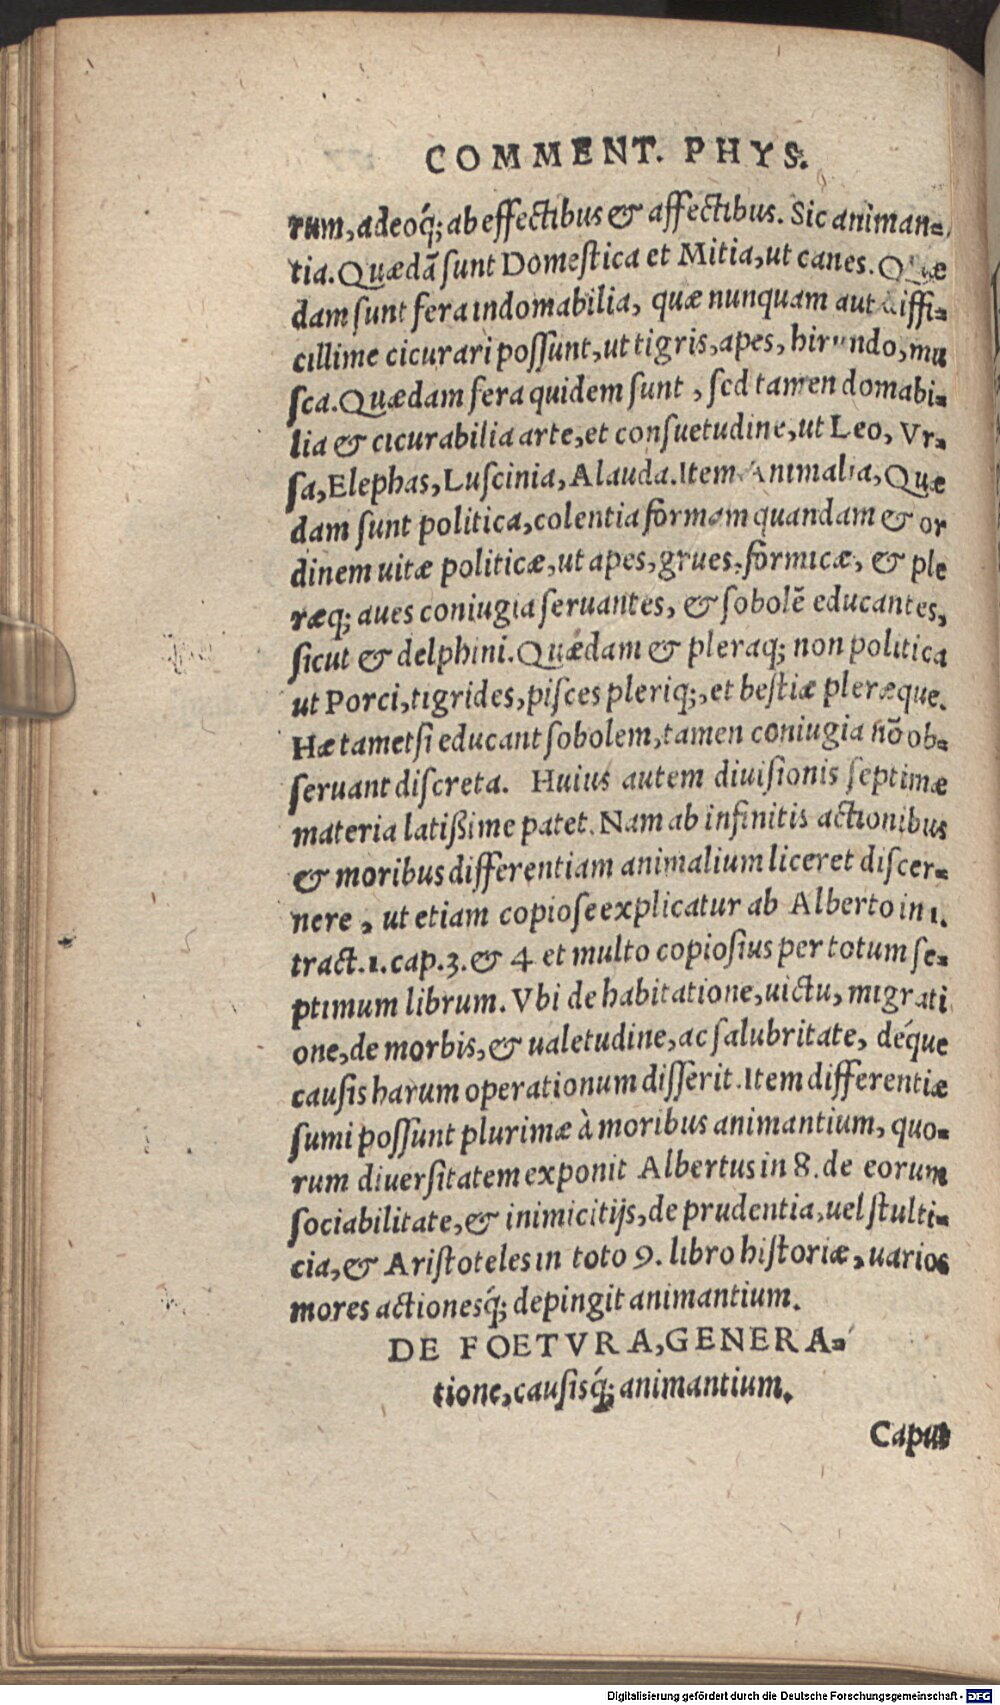 COMMENT. PHYS.
rum, adeoq́; ab effectibus & affectibus. Sic animan=
tia. Quædã sunt Domestica et Mitia, ut canes. Quæ
dam sunt fera indomabilia, quæ nunquam aut diffi=
cillime cicurari possunt, ut tigris, apes, hirundo, mu
sca. Quædam fera quidem sunt, sed tamen domabi=
lia & cicurabilia arte, et consuetudine, ut Leo, Vr=
sa, Elephas, Luscinia, Alauda. Item Animalia, Quæ
dam sunt politica, colentia formam quandam & or
dinem uitæ politicæ, ut apes, grues, formicæ, & ple
ræq; aues coniugia seruantes, & sobolẽ educantes,
sicut & delphini. Quædam & pleraq; non politica
ut Porci, tigrides, pisces pleriq;, et bestiæ pleræque.
Hæ tametsi educant sobolem, tamen coniugia nõ ob=
seruant discreta. Huius autem diuisionis septimæ
materia latißime patet. Nam ab infinitis actionibus
& moribus differentiam animalium liceret discer=
nere, ut etiam copiose explicatur ab Alberto in 1.
tract. 1. cap. 3. & 4 et multo copiosius per totum se=
ptimum librum. Vbi de habitatione, uictu, migrati
one, de morbis, & ualetudine, ac salubritate, déque
causis harum operationum disserit. Item differentiæ
sumi possunt plurimæ à moribus animantium, quo=
rum diuersitatem exponit Albertus in 8. de eorum
sociabilitate, & inimicitijs, de prudentia, uel stulti=
cia, & Aristoteles in toto 9. libro historiæ, uarios
mores actionesq́; depingit animantium.
DE FOETVRA, GENERA=
tione, causisq́; animantium.
Caput
Digitalisierung gefördert durch die Deutsche Forschungsgemeinschaft - DFG